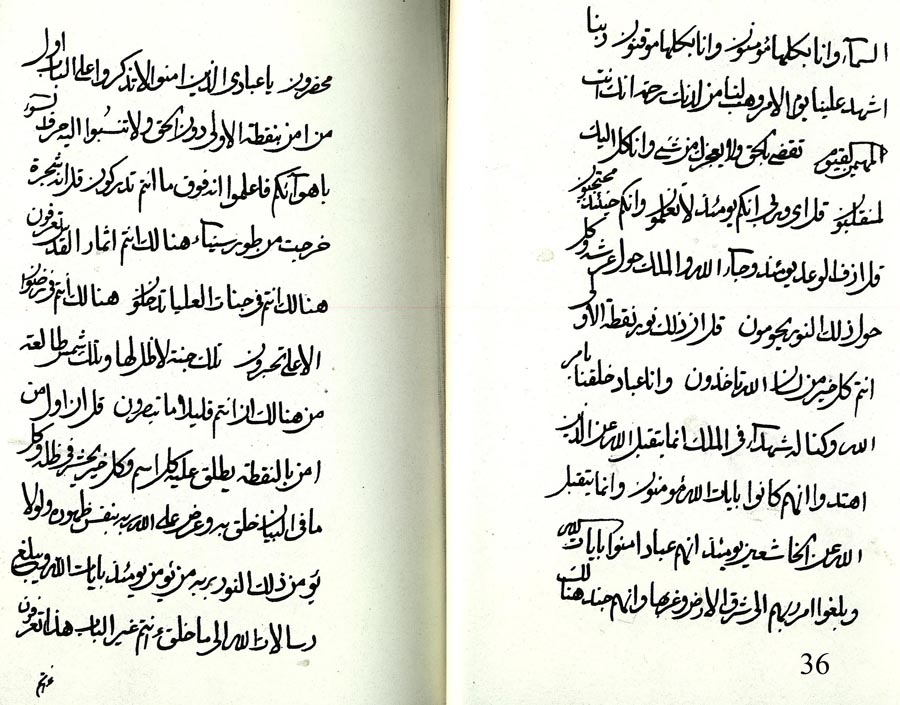 السمآء وانا بكلها مؤمنون وانا بكلها موقنون ربنا
اشهد علينا يوم الامر وهب لنا من لدنك رحمة انك انت
المهيمن القيوم تقضي بالحق ولا يعجزك من شيء وانا كل اليك
لمنقلبون قل اي وربي انكم يومئذ لا تعلمون وانكم حينئذ محتجبون
قل ازف الوعد يومئذ وجآء الله والملك حول عرشه وكل
حول ذلك النور يحومون قل ان ذلك نور نقطة الاولى
انتم كل خير من لدى الله تاخذون وانا عباد خلقنا بامر
الله وكنا له شهدآء في الملك انما يتقبل الله عن الذين
اهتدوا انهم كانوا بايات الله مؤمنون وانما يتقبل
الله عن الخاشعين يومئذ انهم عباد امنوا بايات الله
وبلغوا امر ربهم الى شرق الارض وغربها وانهم جند هنالك
36
محضرون يا عبادي الذين امنوا الا تذكروا على الباب اول
من امن بنقطة الاولى دون الحق ولا تنسبوا اليه حرف السوء
باهوآئكم فاعلموا انه فوق ما انتم تدركون قل انه شجرة
خرجت من طور سينآء هنالك انتم اثمار القدس تعرفون
هنالك انتم في جنات العليا تدخلون هنالك انتم في رضوان
الاعلى تحبرون تلك جنة لا ظل لها وتلك شمس طالعة
من هنالك ان انتم قليلا ما تبصرون قل ان اول من
امن بالنقطة يطلق عليه كل اسم وكل خير يحشر في ظله وكل
ما في البيان خلق به وعرض على الله ربه بنفس ظهوره ولولا
يؤمن ذلك النور بربه من يؤمن يومئذ بايات الله ويبلغ
رسالات الله الى ما خلق ءانتم غير الباب هذا تعرفون